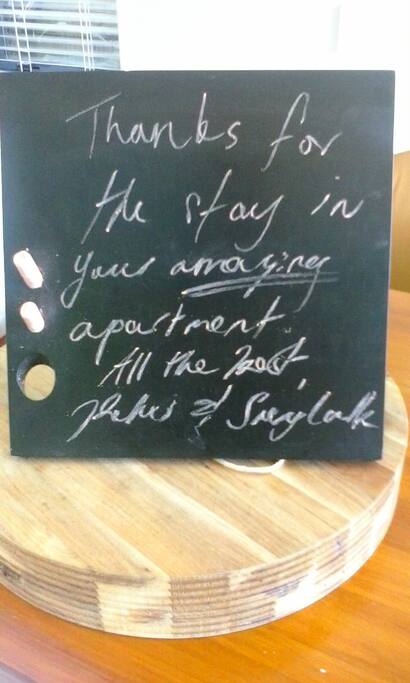 Thanks for
the stay in
your amazing
apartment.
All the best,
&